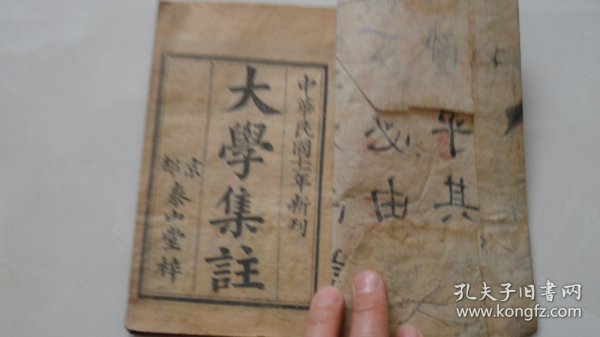 中華民國十二年新刊
大學集註
京都泰山堂梓
平其
必由
孔夫子旧书网
www.kongfz.com